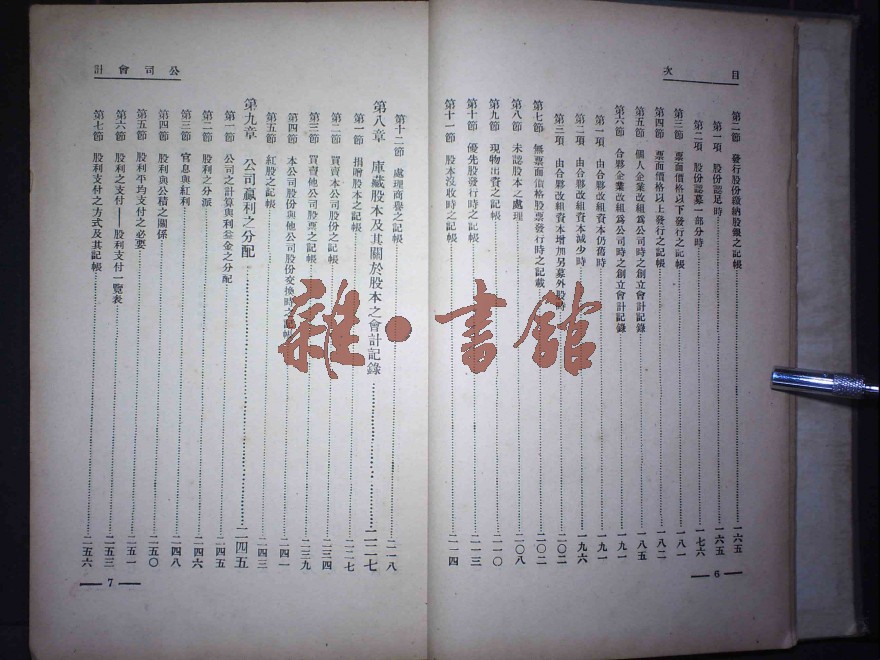 目次
第二節 發行股份繳納股銀之記帳……一六五
第一項 股份認足時……一六五
第二項 股份認募一部分時……一七六
第三節 票面價格以下發行之記帳……一八一
第四節 票面價格以上發行之記帳……一八二
第五節 個人企業改組爲公司時之創立會計記錄……一八五
第六節 合夥企業改組爲公司時之創立會計記錄……一九一
第一項 由合夥改組資本仍舊時……一九一
第二項 由合夥改組資本減少時……一九六
第三項 由合夥改組資本增加另募外股時……二〇二
第七節 無票面價格股票發行時之記載……二〇二
第八節 未認股本之處理……二〇八
第九節 現物出資之記帳……二一〇
第十節 優先股發行時之記帳……二一三
第十一節 股本沒收時之記帳……二一四
— 6 —
公司會計
第十二節 處理商譽之記帳……二一八
第八章 庫藏股本及其關於股本之會計記錄……二二七
第一節 捐贈股本之記帳……二二七
第二節 買賣本公司股份之記帳……二三四
第三節 買賣他公司股票之記帳……二三九
第四節 本公司股份與他公司股份交換時之記帳……二四一
第五節 紅股之記帳……二四三
第九章 公司贏利之分配……二四五
第一節 公司之計算與利益金之分配……二四五
第二節 股利之分派……二四六
第三節 官息與紅利……二四八
第四節 股利與公積之關係……二五〇
第五節 股利平均支付之必要……二五一
第六節 股利之支付——股利支付一覽表……二五三
第七節 股利支付之方式及其記帳……二五六
— 7 —
雜·書館